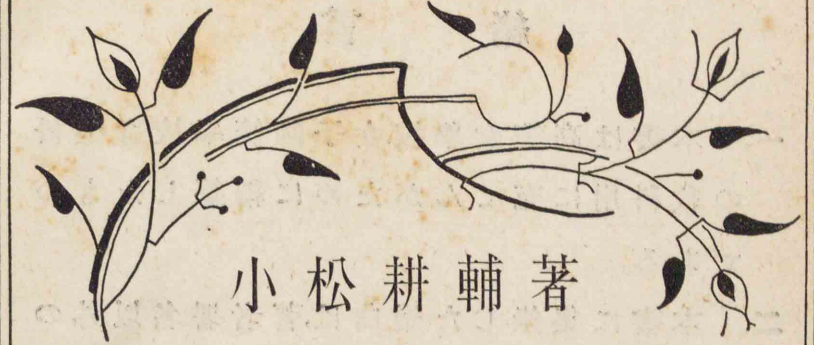 小松耕輔著